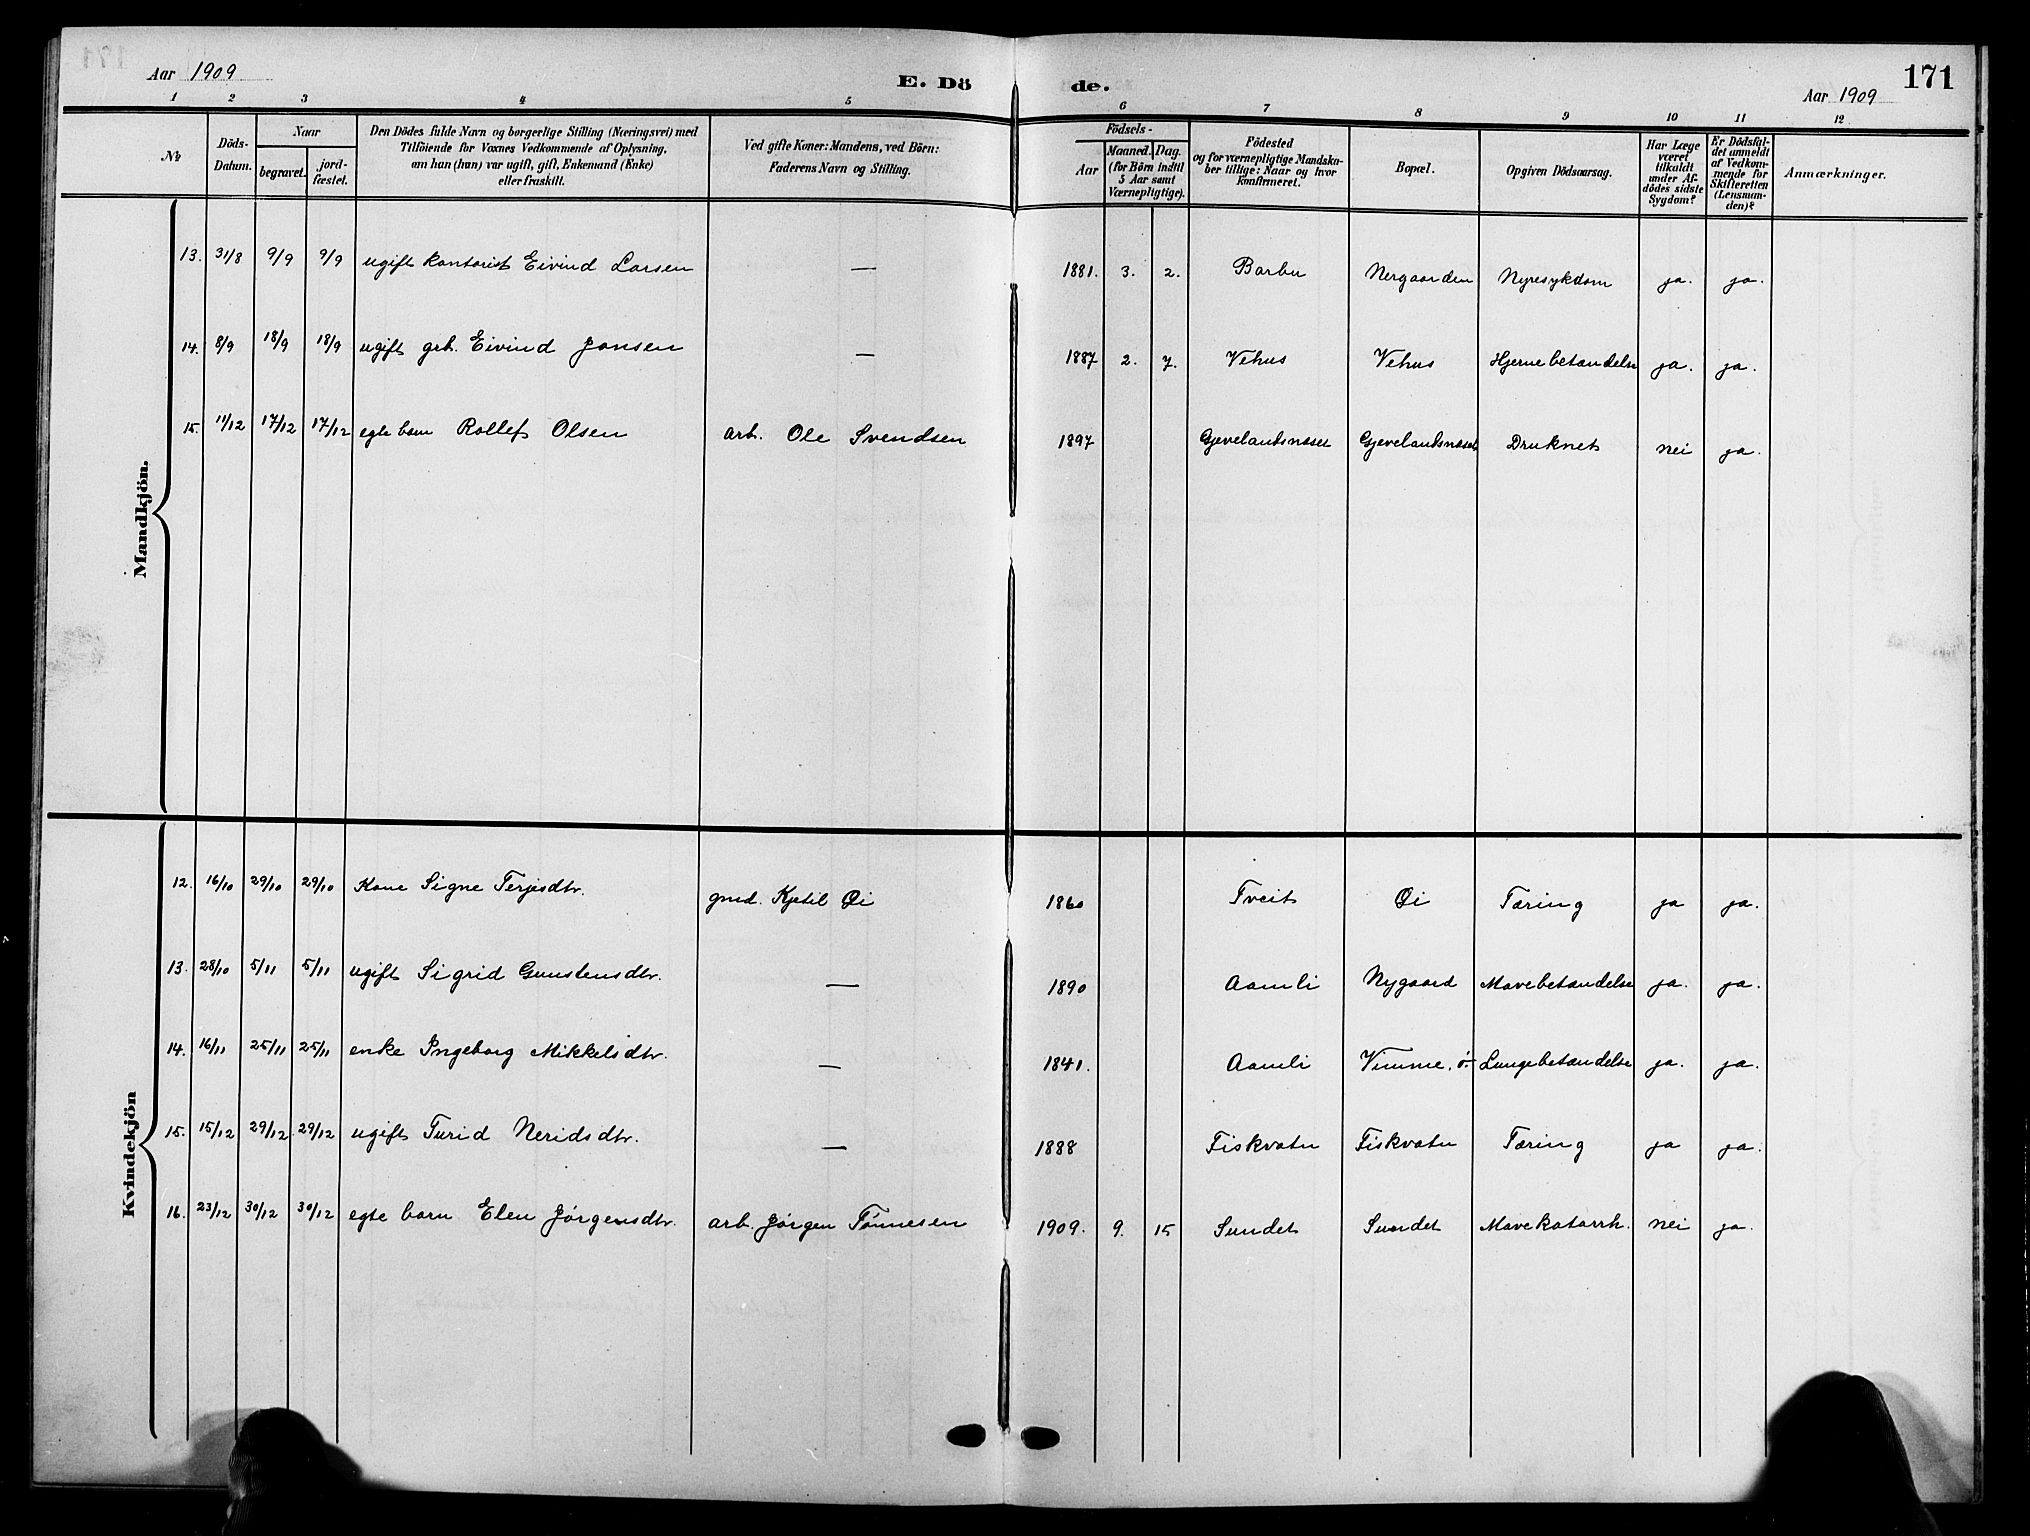 Aar 1909
E. Dö
de.
171
Aar 1909
1 2 3 4 5 6 7 8 9 10 11 12
№
Döds-Datum.
Naar
begravet.
jord-fæstet.
Den Dödes fulde Navn og borgerlige Stilling (Næringsvei) med
Tilföiende for Voxnes Vedkommende af Oplysning,
om hun (han) var ugift, gift, Enkemand (Enke)
eller fraskilt.
Ved gifte Koner: Mandens, ved Börn:
Faderens Navn og Stilling.
Födsels-
Aar
Maaned. Dag.
(for Börn indtil
5 Aar samt
Værnepligtige).
Födested
og for værnepligtige Mandska-
ber tillige: Naar og hvor
konfirmeret.
Bopæl.
Opgiven Dödsaarsag.
Har Læge
været
tilkaldt
under Af-
dödes sidste
Sygdom?
Er Dödsfal-
det anmeldt
af Vedkom-
mende for
Skifteretten
(Lensman-
den)?
Anmærkninger.
Mandkjön.
13. 31/8 9/9 9/9 ugift kontorist Eivind Larsen — 1881. 3. 2. Barbu Nergaarden Nyresykdom ja. ja.
14. 8/9 18/9 18/9 ugift grb. Eivind Jansen — 1887 2. 7. Vehus Vehus Hjernebetændelse ja. ja.
15. 11/12 17/12 17/12 egte barn Rollef Olsen arb. Ole Svendsen 1897 Gjevelandsnæset Gjevelandsnæset Druknet nei ja.
Kvindekjön
12. 16/10 29/10 29/10 Kone Signe Terjesdtr. gmd. Kjetil Øi 1860 Tveit Øi Tæring ja ja.
13. 28/10 5/11 5/11 ugift Sigrid Gunstensdtr. — 1890 Aamli Nygaard Mavebetændelse ja. ja.
14. 16/11 25/11 25/11 enke Ingeborg Mikkelsdtr. — 1841. Aamli Vimme, ö. Lungebetændelse ja. ja.
15. 15/12 29/12 29/12 ugift Turid Neridsdtr. — 1888 Fiskvatn Fiskvatn Tæring ja ja.
16. 23/12 30/12 30/12 egte barn Elen Jørgensdtr. arb. Jørgen Tønnesen 1909. 9. 15 Sundet Sundet Mavekatarrh. nei ja.